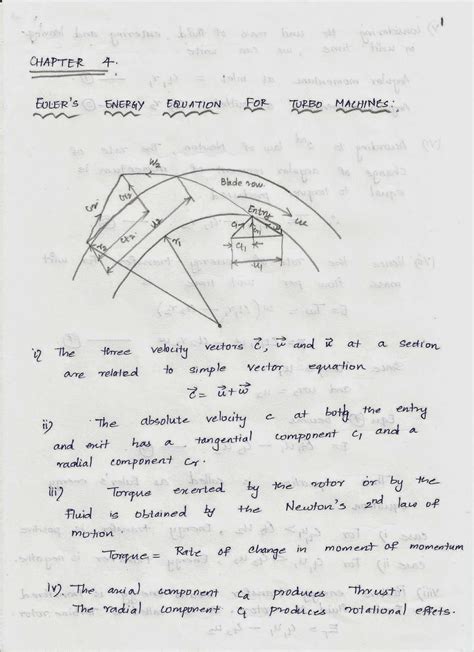 1
CHAPTER 4.
EULER'S ENERGY EQUATION FOR TURBO MACHINES:
Blade row
Entry
u
w2
cr2
u2
r2
r1
c1
u1
i) The three velocity vectors c⃗, w⃗ and u⃗ at a section
are related to simple vector equation
c⃗ = u⃗ + w⃗
ii) The absolute velocity c at both the entry
and exit has a tangential component ct and a
radial component cr.
iii) Torque exerted by the rotor or by the
fluid is obtained by the Newton's 2nd law of
motion.
Torque = Rate of change in moment of momentum
iv) The axial component ca produces Thrust.
The radial component ct produces rotational effets.